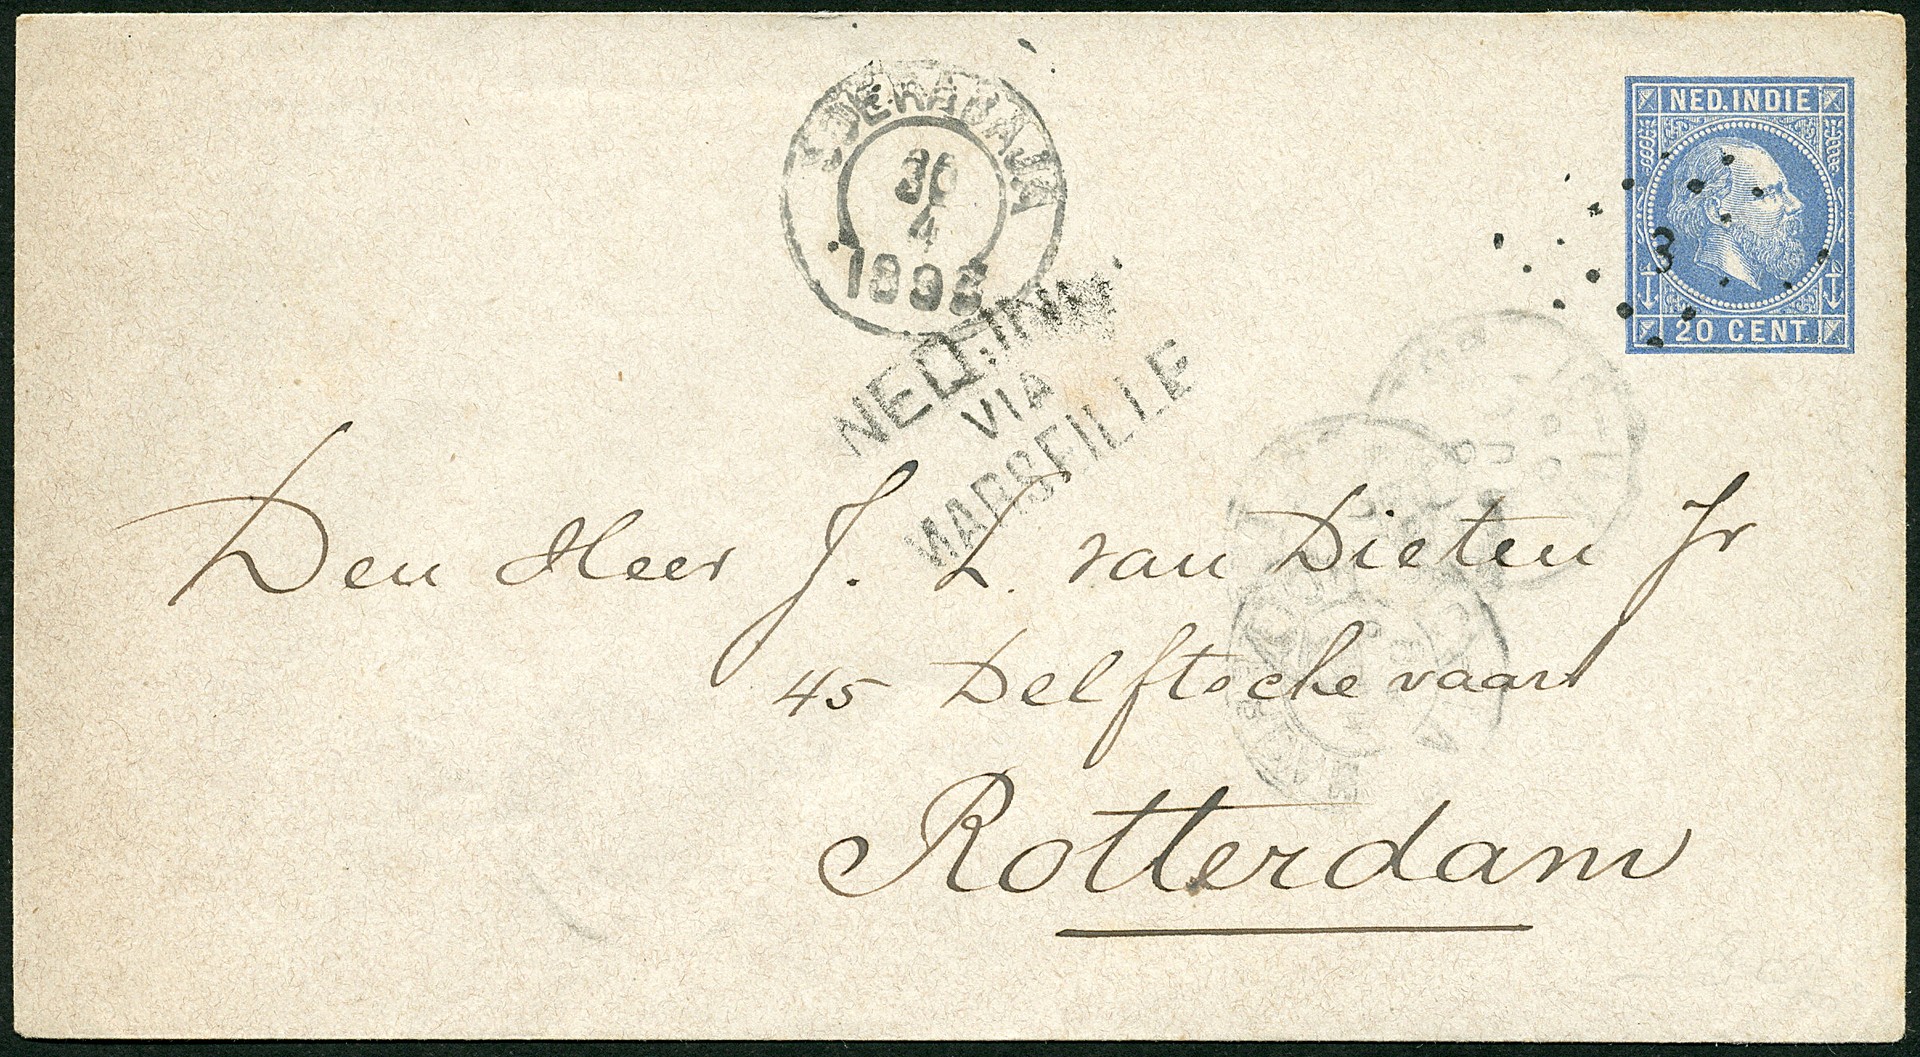 NED. INDIE
3
20 CENT.
SOERABAJA
30
4
NED. IND.
VIA
MARSEILLE
Den Heer J. L. van Dieten Jr
45 Delftsche vaart
Rotterdam